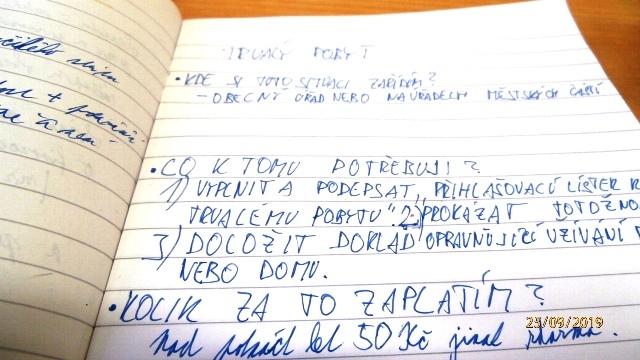 TRVALÝ POBYT
• KDE SI TUTO SITUACI ZAŘÍDÍM?
– OBECNÝ ÚŘAD NEBO NA ÚŘADECH MĚSTSKÝCH ČÁSTÍ
• CO K TOMU POTŘEBUJI?
1) VYPLNIT A PODEPSAT „PŘIHLAŠOVACÍ LÍSTEK K
TRVALÉMU POBYTU“ 2) PROKÁZAT TOTOŽNO
3) DOLOŽIT DOKLAD OPRAVŇUJÍCÍ UŽÍVÁNÍ
NEBO DOMU.
• KOLIK ZA TO ZAPLATÍM?
nad let 50 Kč jinak zdarma.
25/09/2019